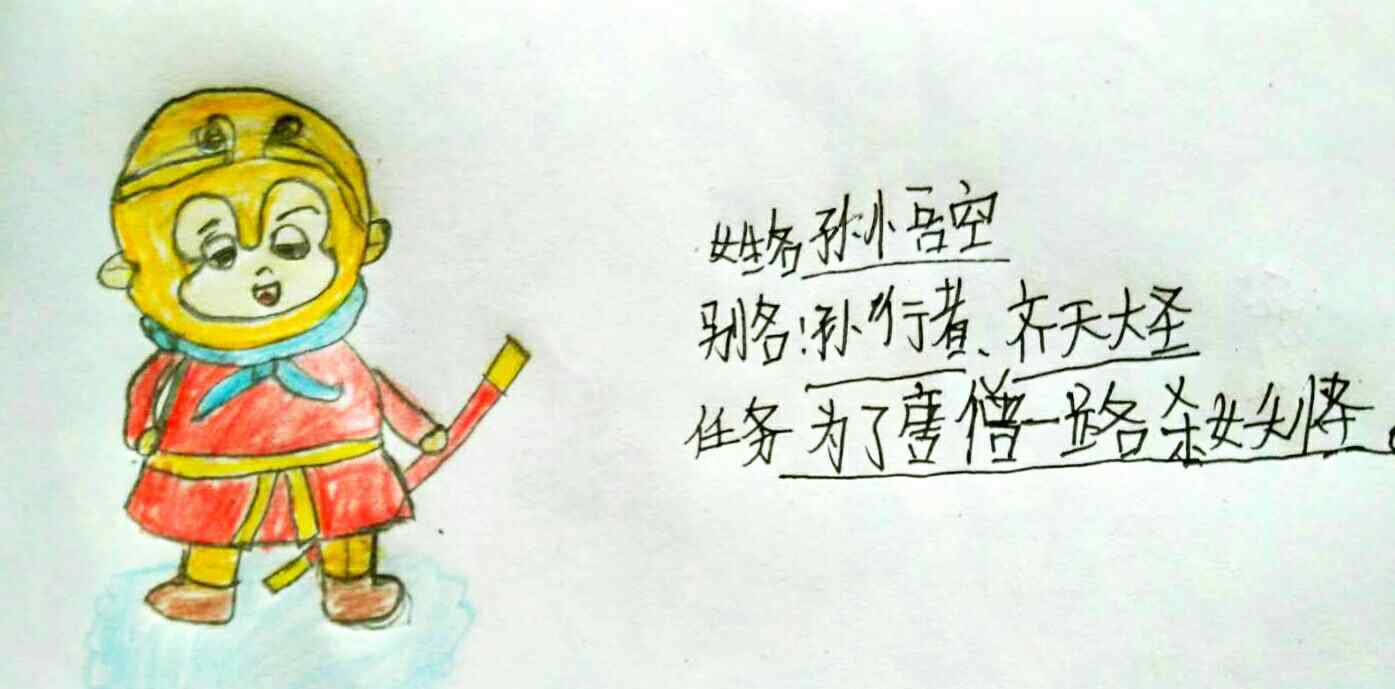 姓名孙小悟空
别名:孙行者、齐天大圣
任务为了唐僧一路杀妖怪。